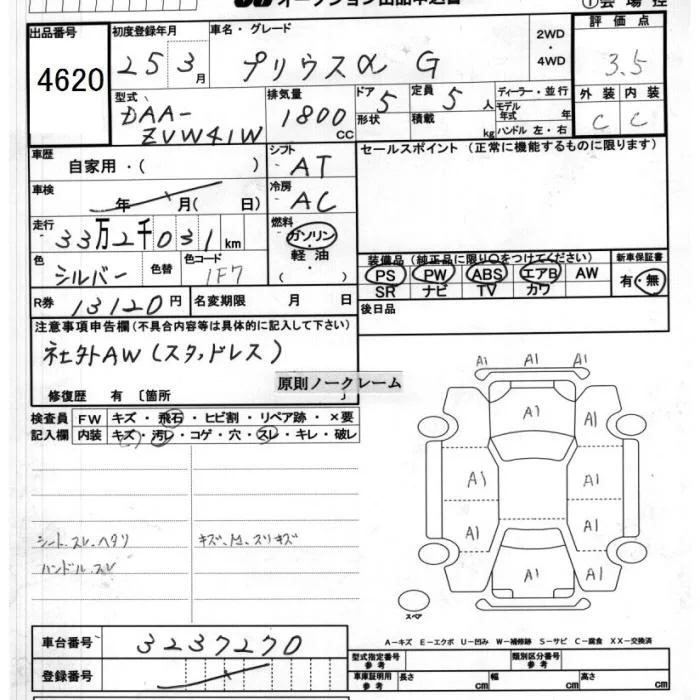 出品番号
4620
初度登録年月
25 3月
車名・グレード
プリウスα G
2WD
・
4WD
評価点
3.5
外装 内装
C C
型式
DAA-
ZVW41W
排気量
1800
CC
ドア 5
形状
定員 5 人
積載 kg
ディーラー・並行
モデル
年式 年
ハンドル 左・右
車歴
自家用・( )
シフト
AT
セールスポイント (正常に機能するものに限ります)
車検
年 月( 日)
冷房
AC
走行
33万2千031 km
燃料
ガソリン
軽油
( )
色
シルバー
色替
色コード
1F7
装備品 (純正品に限り○をつけてください)
PS PW ABS エアB AW
SR ナビ TV カワ
新車保証書
有・無
R券 13120円
名変期限 月 日
後日品
注意事項申告欄 (不具合内容等は具体的に記入して下さい)
社外AW (スタッドレス)
原則ノークレーム
修復歴 有 〔箇所 〕
検査員
記入欄
FW キズ・飛石・ヒビ割・リペア跡・×要
内装 キズ・汚レ・コゲ・穴・スレ・キレ・破レ
シート、スレ、ヘタリ
ハンドル、スレ
A1 A1 A1
A1 A1
A1 A1
A1 A1
A1 A1 A1
スペア
A-キズ E-エクボ U-凹み W-補修跡 S-サビ C-腐食 XX-交換済
車台番号 3237270
登録番号
型式指定番号
参考
類別区分番号
参考
車庫証明用
参考
長さ cm
幅 cm
高さ cm